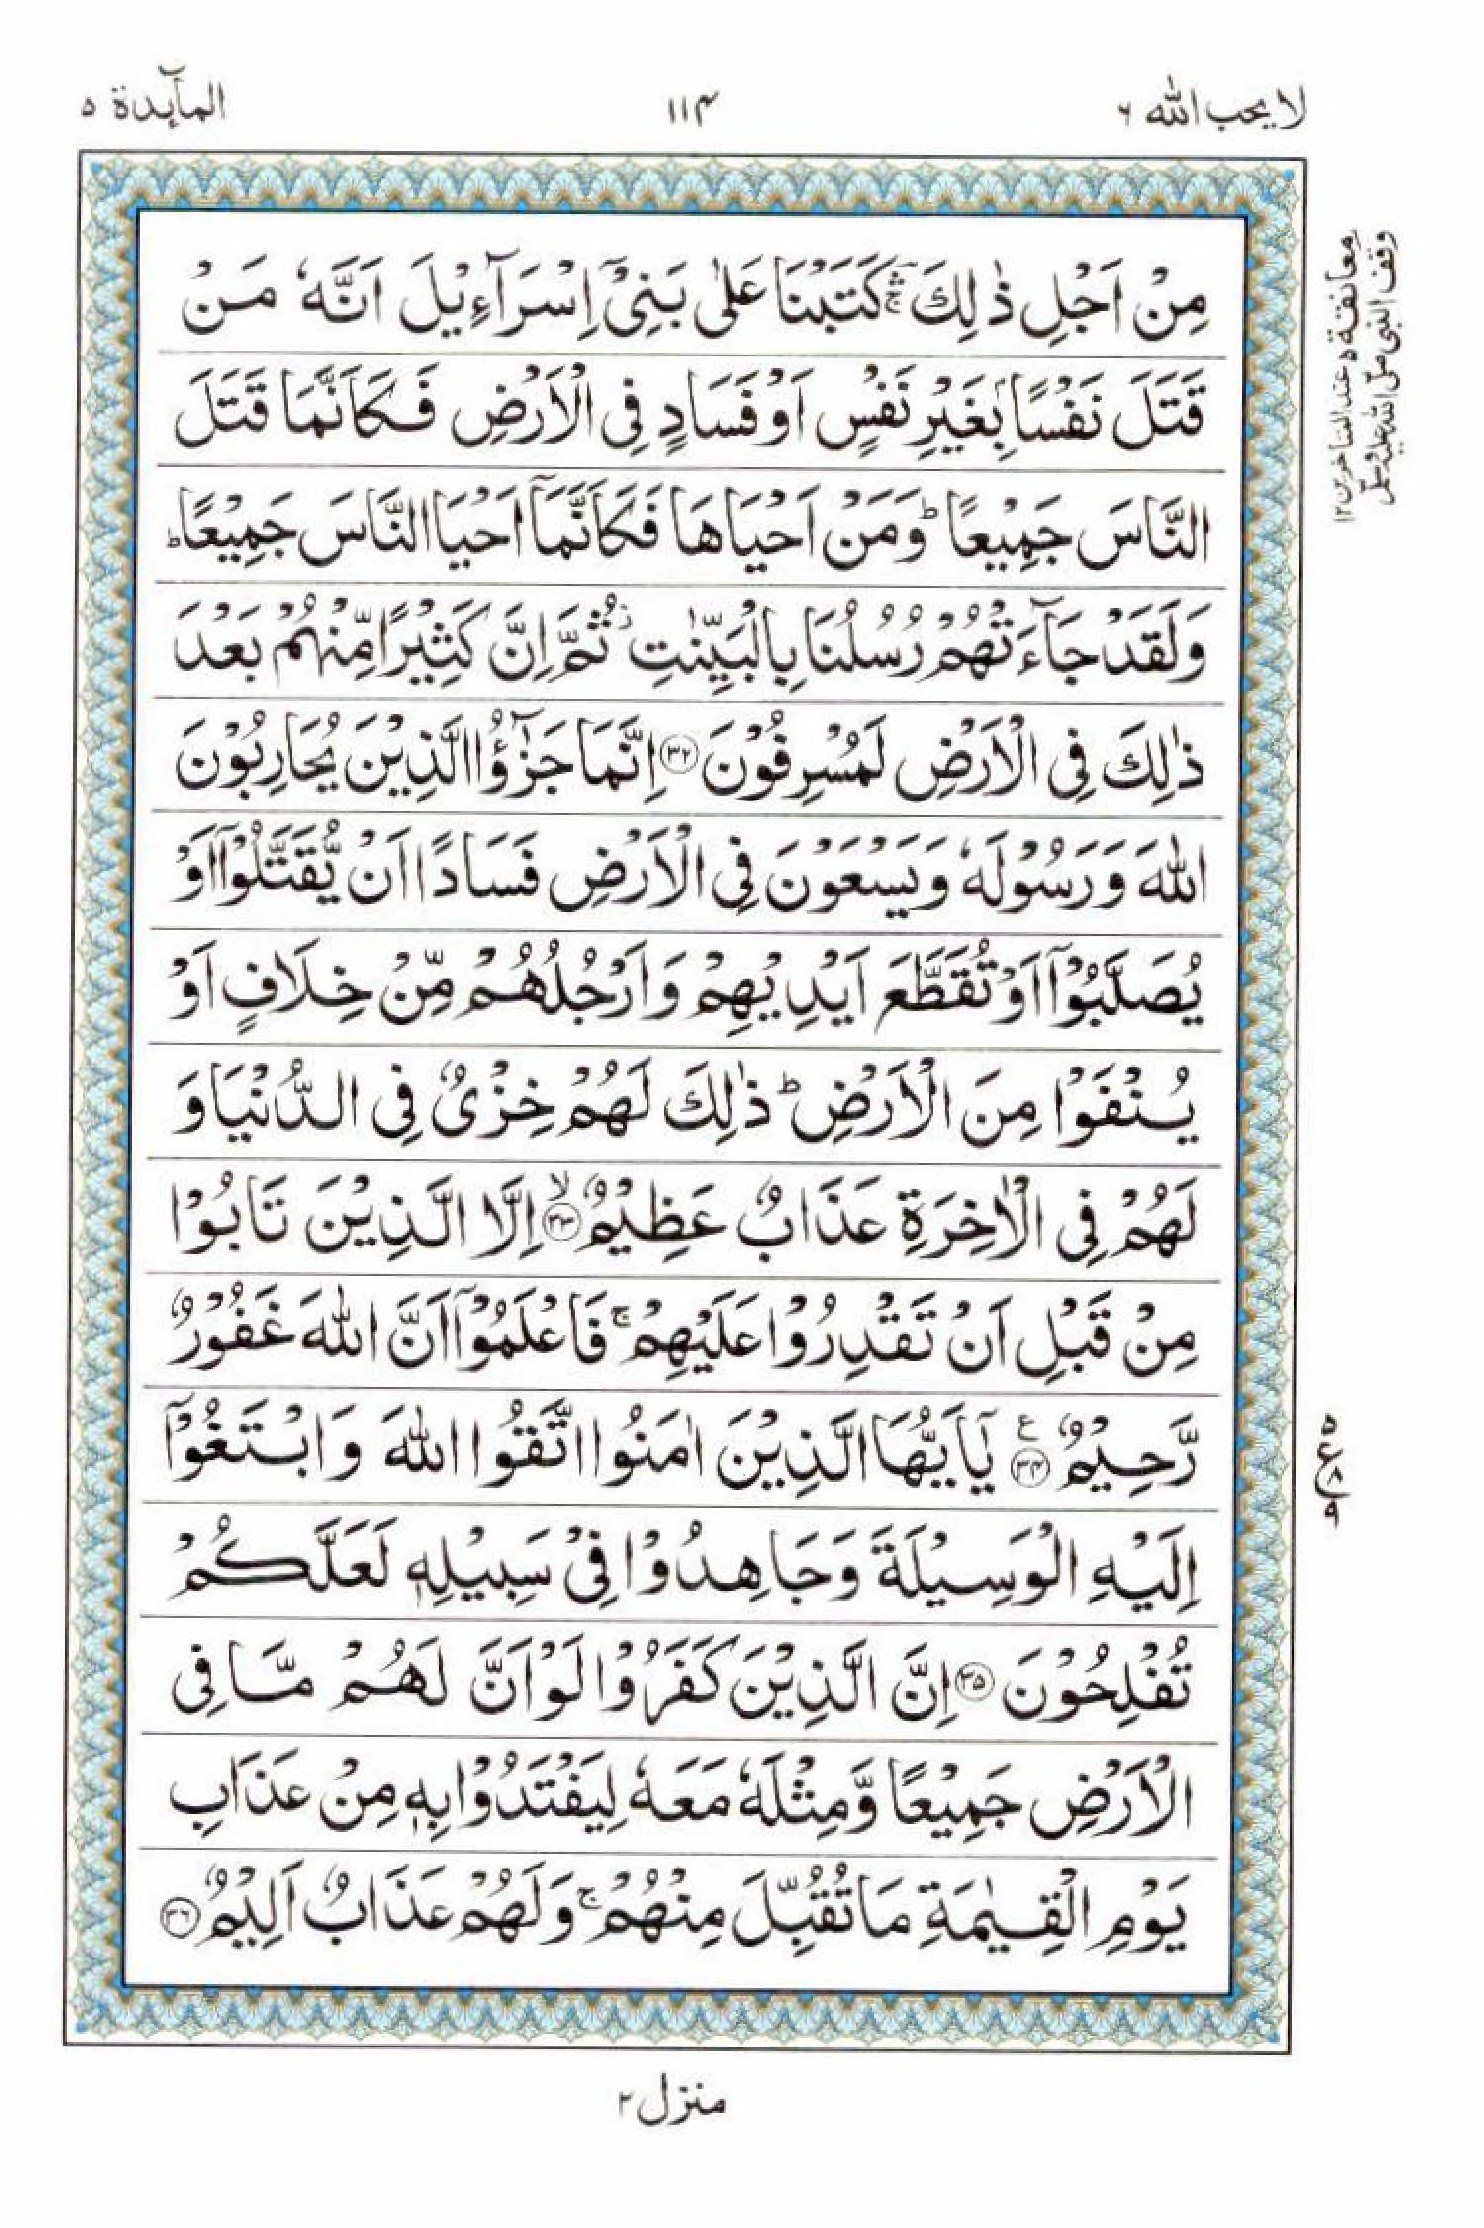 لا يحب الله ٦
١١٤
المآىِٕدة ٥
مِنْ اَجْلِ ذٰلِكَ ۛۚ كَتَبْنَا عَلٰى بَنِىْۤ اِسْرَآءِيْلَ اَنَّهٗ مَنْ
قَتَلَ نَفْسًۢا بِغَيْرِ نَفْسٍ اَوْ فَسَادٍ فِى الْاَرْضِ فَكَاَنَّمَا قَتَلَ
النَّاسَ جَمِيْعًا ؕ وَمَنْ اَحْيَاهَا فَكَاَنَّمَاۤ اَحْيَا النَّاسَ جَمِيْعًا ؕ
وَلَقَدْ جَآءَتْهُمْ رُسُلُنَا بِالْبَيِّنٰتِ ؗ ثُمَّ اِنَّ كَثِيْرًا مِّنْهُمْ بَعْدَ
ذٰلِكَ فِى الْاَرْضِ لَمُسْرِفُوْنَ ﴿٣٢﴾ اِنَّمَا جَزٰٓؤُا الَّذِيْنَ يُحَارِبُوْنَ
اللّٰهَ وَرَسُوْلَهٗ وَيَسْعَوْنَ فِى الْاَرْضِ فَسَادًا اَنْ يُّقَتَّلُوْۤا اَوْ
يُصَلَّبُوْۤا اَوْ تُقَطَّعَ اَيْدِيْهِمْ وَاَرْجُلُهُمْ مِّنْ خِلَافٍ اَوْ
يُنْفَوْا مِنَ الْاَرْضِ ؕ ذٰلِكَ لَهُمْ خِزْىٌ فِى الدُّنْيَا وَ
لَهُمْ فِى الْاٰخِرَةِ عَذَابٌ عَظِيْمٌ ﴿٣٣﴾ۙ اِلَّا الَّذِيْنَ تَابُوْا
مِنْ قَبْلِ اَنْ تَقْدِرُوْا عَلَيْهِمْ ۚ فَاعْلَمُوْۤا اَنَّ اللّٰهَ غَفُوْرٌ
رَّحِيْمٌ ﴿٣٤﴾ ع يٰۤاَيُّهَا الَّذِيْنَ اٰمَنُوا اتَّقُوا اللّٰهَ وَابْتَغُوْۤا
اِلَيْهِ الْوَسِيْلَةَ وَجَاهِدُوْا فِىْ سَبِيْلِهٖ لَعَلَّكُمْ
تُفْلِحُوْنَ ﴿٣٥﴾ اِنَّ الَّذِيْنَ كَفَرُوْا لَوْ اَنَّ لَهُمْ مَّا فِى
الْاَرْضِ جَمِيْعًا وَّمِثْلَهٗ مَعَهٗ لِيَفْتَدُوْا بِهٖ مِنْ عَذَابِ
يَوْمِ الْقِيٰمَةِ مَا تُقُبِّلَ مِنْهُمْ ۚ وَلَهُمْ عَذَابٌ اَلِيْمٌ ﴿٣٦﴾
وقف النبى صلى الله عليه وسلم
معانقة ٥ عند المتاخرين ١٢
٥
ع ٨
٩
منزل ٢